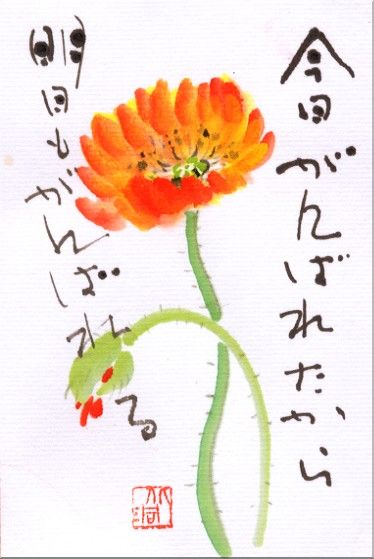 今日がんばれたから
明日もがんばれる